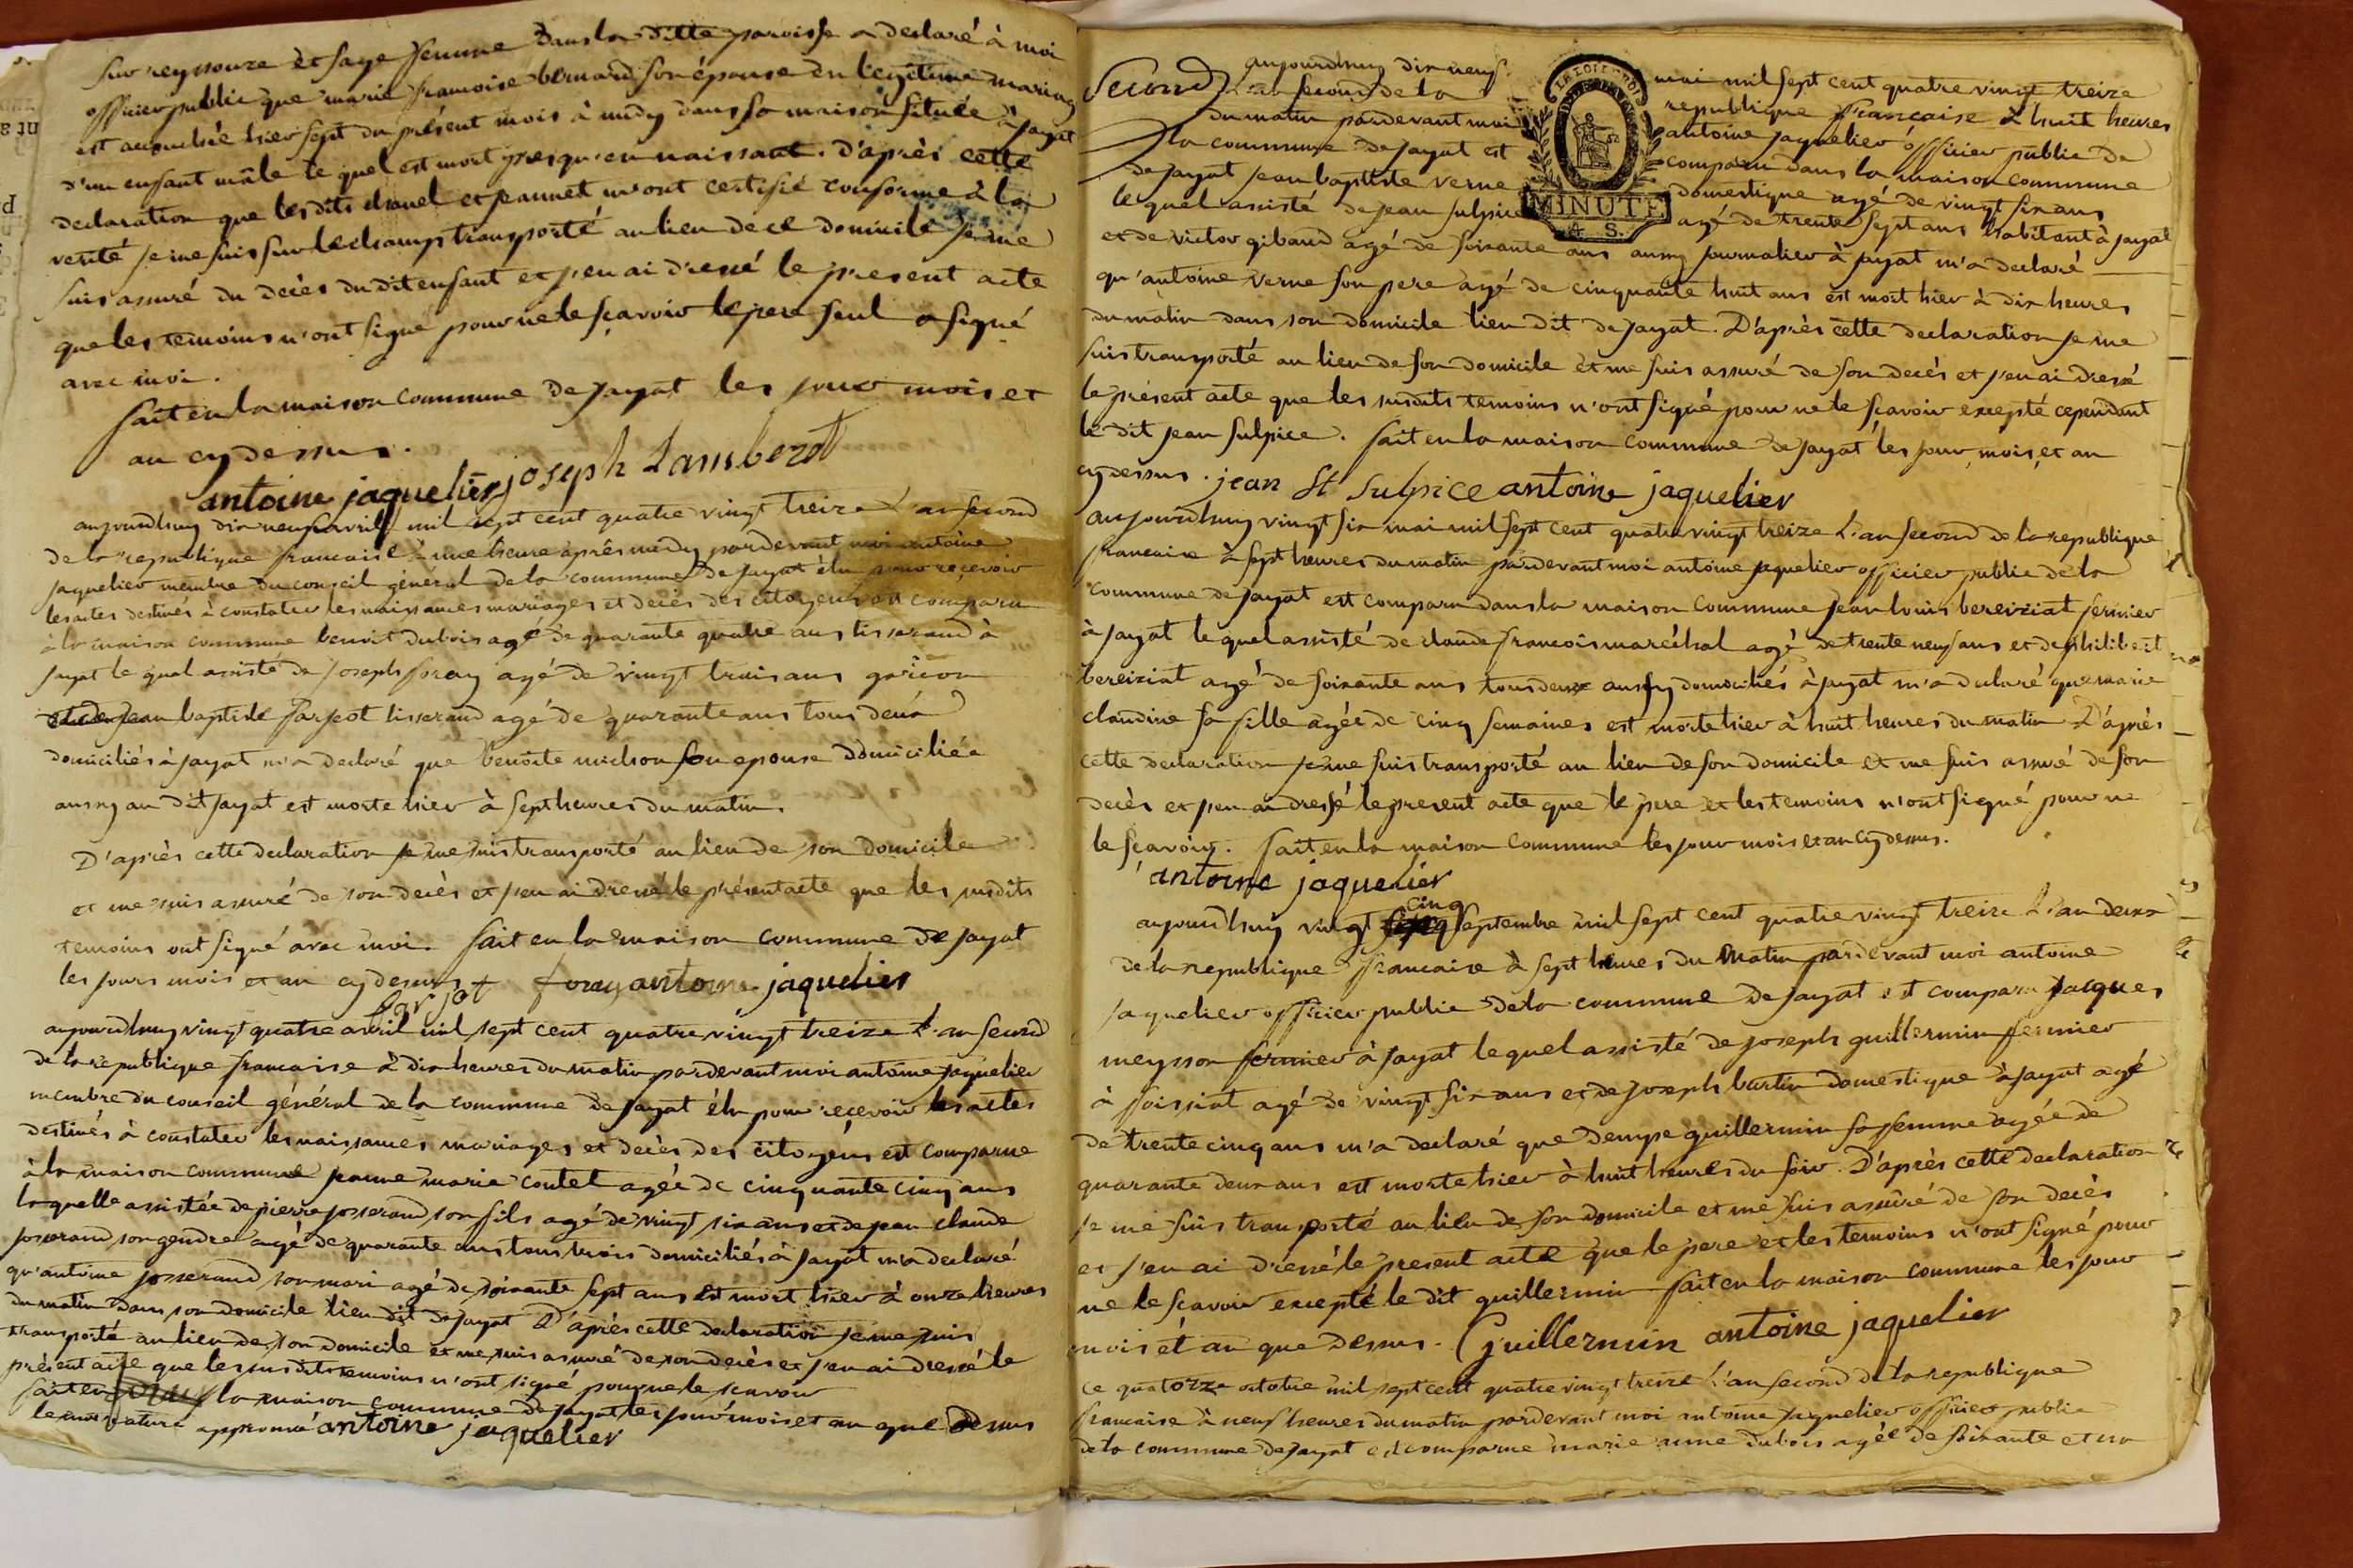 sur reyssouze et sage femme dans la ditte paroisse a declaré à moi
officier public que marie francoise bernard son épouse en legitime mariag
est accouchée hier sept du présent mois à midy dans sa maison située à jayat
d'un enfant mâle le quel est mort presqu'en naissant. d'après cette
declaration que les dits chanel et jeannet m'ont certifié conforme à la
verité je me suis sur le champ transporté au lieu de ce domicile je me
suis assuré du decès du dit enfant et j'en ai dressé le present acte
que les temoins n'ont signé pour ne le sçavoir le pere seul a signé
avec moi.
fait en la maison commune de jayat les jour mois et
an cy dessus.
antoine jaquelier joseph Lamberot
aujourdhuy dix neuf avril mil sept cent quatre vingt treize l'an second
de la republique francaise à une heure après midy pardevant moi antoine
jaquelier membre du conseil général de la commune de jayat élu pour reçevoir
les actes destinés à constater les naissances mariages et decès des citoyens est comparu
à la maison commune benoit dubois agé de quarante quatre ans tisserand à
jayat le quel assisté de joseph foray agé de vingt trois ans garçon
et de jean baptiste farjot tisserand agé de quarante ans tous deux
domiciliés à jayat m'a declaré que benoite michon son epouse domiciliée
aussy au dit jayat est morte hier à sept heures du matin.
D'après cette declaration je me suis transporté au lieu de son domicile
et me suis assuré de son decès et j'en ai dressé le présent acte que les susdits
temoins ont signé avec moi. fait en la maison commune de jayat
les jours mois et an cy dessus foray antoine jaquelier
farjot
aujourdhuy vingt quatre avril mil sept cent quatre vingt treize l'an second
de la republique francaise à dix heures du matin pardevant moi antoine jaquelier
membre du conseil général de la commune de jayat élu pour reçevoir les actes
destinés à constater les naissances mariages et decès des citoyens est comparue
à la maison commune jeanne marie contet agée de cinquante cinq ans
laquelle assistée de pierre josserand son fils agé de vingt six ans et de jean claude
josserand son gendre agé de quarante ans tous trois domiciliés à jayat m'a declaré
qu'antoine josserand son mari agé de soixante sept ans est mort hier à onze heures
du matin dans son domicile lieu dit de jayat D'après cette declaration je me suis
transporté au lieu de son domicile et me suis assuré de son decès et j'en ai dressé le
présent acte que les susdits temoins n'ont signé pour ne le scavoir
fait en la maison commune de jayat les jour mois et an que dessus
approuvé antoine jaquelier
aujourdhuy dix neuf mai mil sept cent quatre vingt treize
second de la republique francaise à huit heures
du matin pardevant moi antoine jaquelier officier public de
la commune de jayat est comparu dans la maison commune
de jayat jean baptiste verne domestique agé de vingt six ans
le quel assisté de jean sulpice agé de trente sept ans habitant à jayat
LA LOI LE ROI
MINUTE
A. S.
et de victor gibaud agé de soixante ans aussy journalier à jayat m'a declaré
qu'antoine verne son pere agé de cinquante huit ans est mort hier à dix heures
du matin dans son domicile lieu dit de jayat. D'après cette declaration je me
suis transporté au lieu de son domicile et me suis assuré de son decès et j'en ai dressé
le présent acte que les susdits temoins n'ont signé pour ne le scavoir excepté cependant
le dit jean sulpice. fait en la maison commune de jayat les jour, mois, et an
cy dessus. jean St Sulpice antoine jaquelier
aujourdhuy vingt six mai mil sept cent quatre vingt treize l'an second de la republique
francaise à sept heures du matin pardevant moi antoine jaquelier officier public de la
commune de jayat est comparu dans la maison commune jean louis bereiziat fermier
à jayat le quel assisté de claude francois maréchal agé de trente neuf ans et de philibert
bereiziat agé de soixante ans tous deux aussy domiciliés à jayat m'a declaré que marie
claudine sa fille agée de cinq semaines est morte hier à huit heures du matin D'après
cette declaration je me suis transporté au lieu de son domicile et me suis assuré de son
decès et j'en ai dressé le present acte que le pere et les temoins n'ont signé pour ne
le scavoir. fait en la maison commune les jour mois et an cy dessus.
antoine jaquelier
cinq
aujourdhuy vingt septembre mil sept cent quatre vingt treize l'an deux
de la republique francaise à sept heures du matin pardevant moi antoine
jaquelier officier public de la commune de jayat est comparu jacques
meysson fermier à jayat le quel assisté de joseph guillermin fermier
à foissiat agé de vingt six ans et de joseph burtin domestique à jayat agé
de trente cinq ans m'a declaré que denyse guillermin sa femme agée de
quarante deux ans est morte hier à huit heures du soir. D'après cette declaration
je me suis transporté au lieu de son domicile et me suis assuré de son decès
et j'en ai dressé le present acte que le pere et les temoins n'ont signé pour
ne le scavoir excepté le dit guillermin fait en la maison commune les jour
mois et an que dessus. Guillermin antoine jaquelier
ce quatorze octobre mil sept cent quatre vingt treize l'an second de la republique
francaise à neuf heures du matin pardevant moi antoine jaquelier officier public
de la commune de jayat est comparue marie anne dubois agée de soixante et un